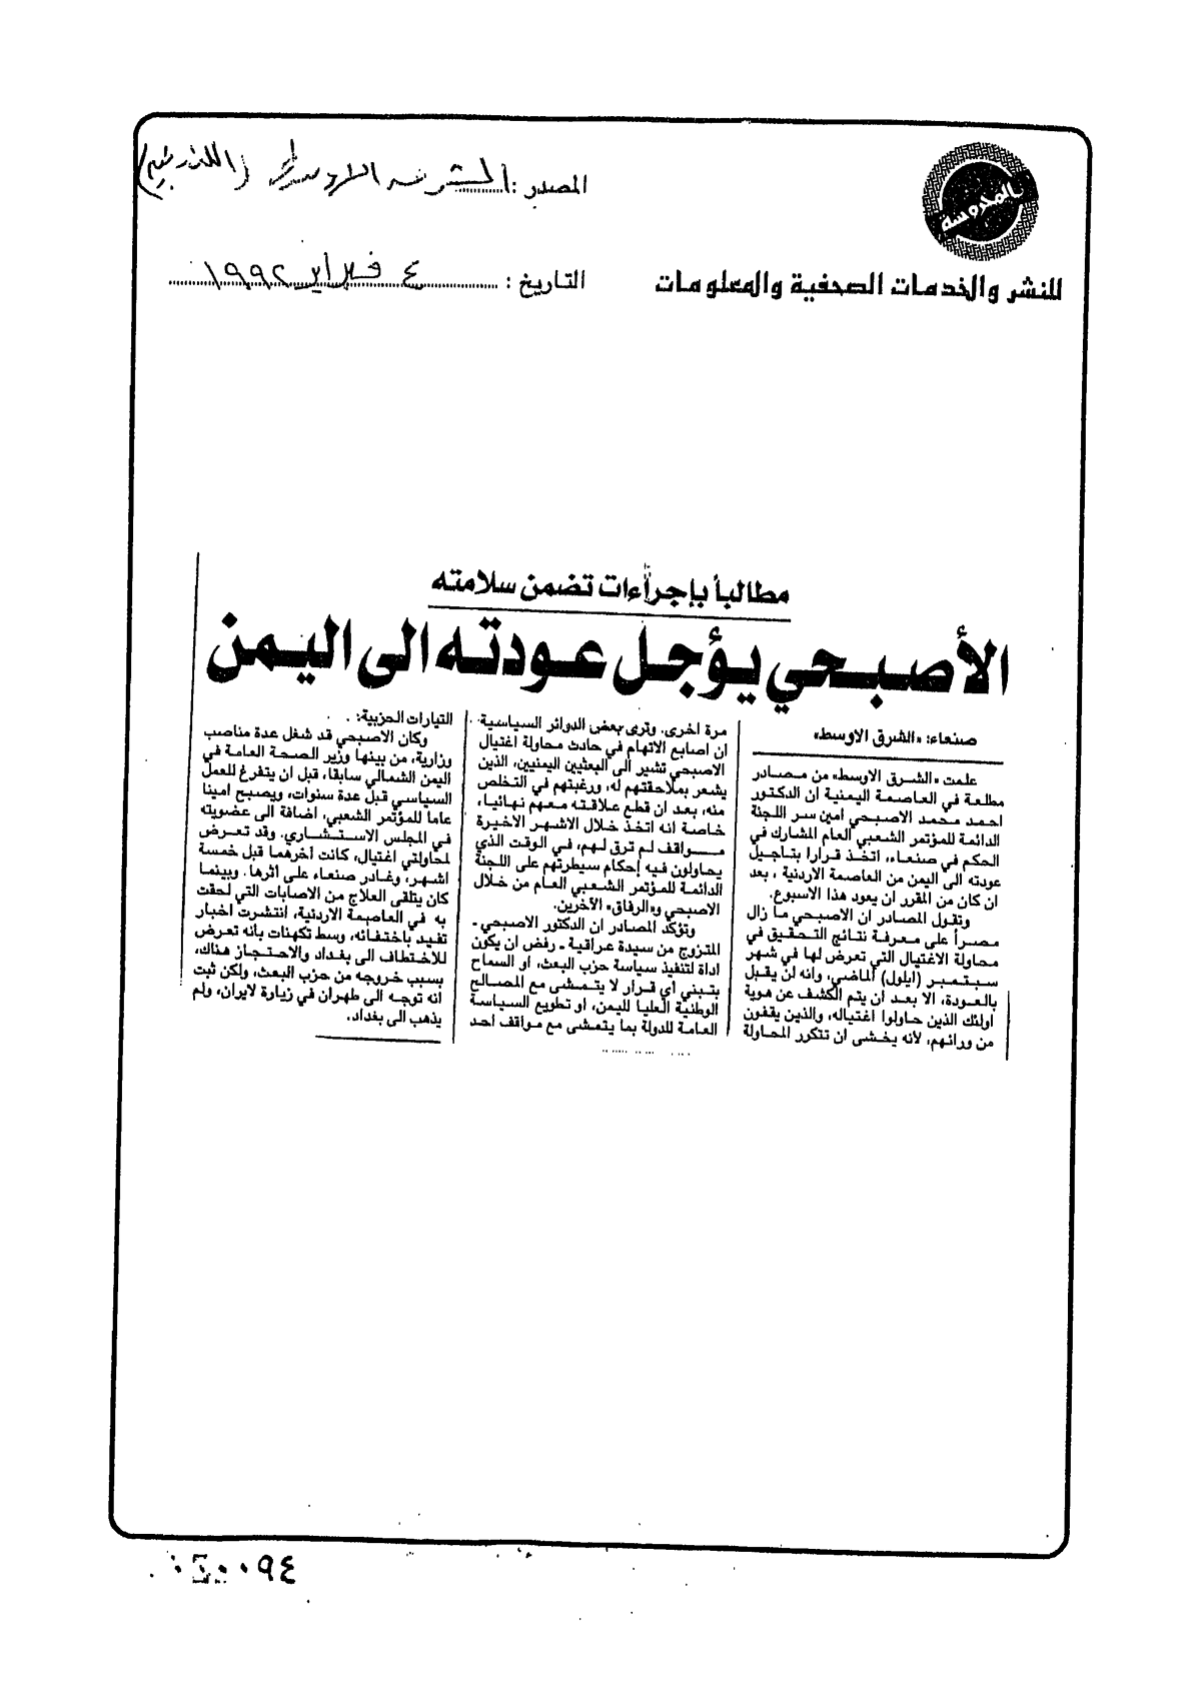 المحروسة
للنشر والخدمات الصحفية والمعلومات
المصدر : الشرق الاوسط (اللندنية)
التاريخ : ٤ فبراير ١٩٩٢
مطالباً بإجراءات تضمن سلامته
الأصبحي يؤجل عودته الى اليمن
صنعاء: «الشرق الاوسط»
علمت «الشرق الاوسط» من مصادر
مطلعة في العاصمة اليمنية ان الدكتور
احمد محمد الاصبحي امين سر اللجنة
الدائمة للمؤتمر الشعبي العام المشارك في
الحكم في صنعاء، اتخذ قرارا بتاجيل
عودته الى اليمن من العاصمة الاردنية ، بعد
ان كان من المقرر ان يعود هذا الاسبوع.
وتقول المصادر ان الاصبحي ما زال
مصراً على معرفة نتائج التحقيق في
محاولة الاغتيال التي تعرض لها في شهر
سبتمبر (ايلول) الماضي، وانه لن يقبل
بالعودة، الا بعد ان يتم الكشف عن هوية
اولئك الذين حاولوا اغتياله، والذين يقفون
من ورائهم، لأنه يخشى ان تتكرر المحاولة
مرة اخرى. وترى بعض الدوائر السياسية
ان اصابع الاتهام في حادث محاولة اغتيال
الاصبحي تشير الى البعثيين اليمنيين، الذين
يشعر بملاحقتهم له، ورغبتهم في التخلص
منه، بعد ان قطع علاقته معهم نهائيا،
خاصة انه اتخذ خلال الاشهر الاخيرة
مواقف لم ترق لهم، في الوقت الذي
يحاولون فيه إحكام سيطرتهم على اللجنة
الدائمة للمؤتمر الشعبي العام من خلال
الاصبحي و«الرفاق» الآخرين.
وتؤكد المصادر ان الدكتور الاصبحي -
المتزوج من سيدة عراقية - رفض ان يكون
اداة لتنفيذ سياسة حزب البعث، او السماح
بتبني أي قرار لا يتمشى مع المصالح
الوطنية العليا لليمن، او تطويع السياسة
العامة للدولة بما يتمشى مع مواقف احد
التيارات الحزبية.
وكان الاصبحي قد شغل عدة مناصب
وزارية، من بينها وزير الصحة العامة في
اليمن الشمالي سابقا، قبل ان يتفرغ للعمل
السياسي قبل عدة سنوات، ويصبح امينا
عاما للمؤتمر الشعبي، اضافة الى عضويته
في المجلس الاستشاري. وقد تعرض
لمحاولتي اغتيال، كانت أخرهما قبل خمسة
اشهر، وغادر صنعاء على اثرها. وبينما
كان يتلقى العلاج من الاصابات التي لحقت
به في العاصمة الاردنية، انتشرت اخبار
تفيد باختفائه، وسط تكهنات بانه تعرض
للاختطاف الى بغداد والاحتجاز هناك،
بسبب خروجه من حزب البعث، ولكن ثبت
أنه توجه الى طهران في زيارة لايران، ولم
يذهب الى بغداد.